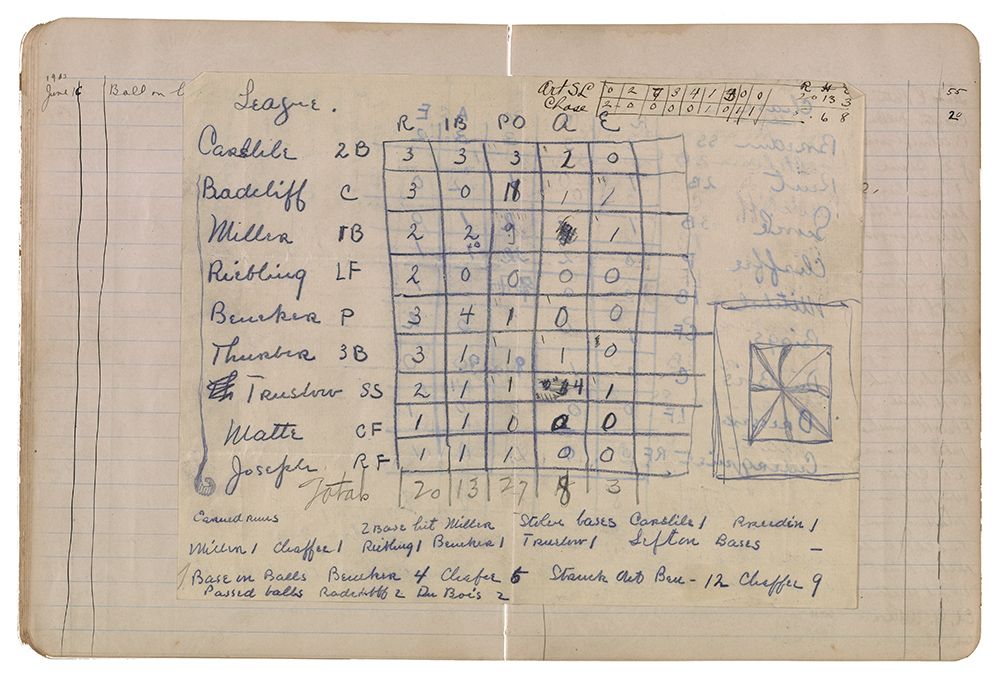 1903
June 16 Ball on
55
20
League.
Art S L 0 2 7 3 4 1 3 0 0 R H E 20 13 3
Chase 2 0 0 0 0 1 0 1 1 5 6 8
R 1B PO A E
Carslile 2B 3 3 3 2 0
Radcliff C 3 0 18 1 1
Miller 1B 2 2 9 1
Riebling LF 2 0 0 0 0
Beucker P 3 4 1 0 0
Thurber 3B 3 1 1 1 0
Truslow SS 2 1 1 4 1
Matte CF 1 1 0 0 0
Joseph RF 1 1 1 0 0
Totals 20 13 27 8 3
Earned runs
2 Base hit Miller Stolen bases Carslile 1 Breedin 1
Miller 1 Chaffee 1 Riebling 1 Beucker 1 Truslow 1 Left on Bases –
Base on Balls Beucker 4 Chafee 5 Struck Out Beu - 12 Chaffee 9
Passed balls Radcliff 2 Du Bois 2